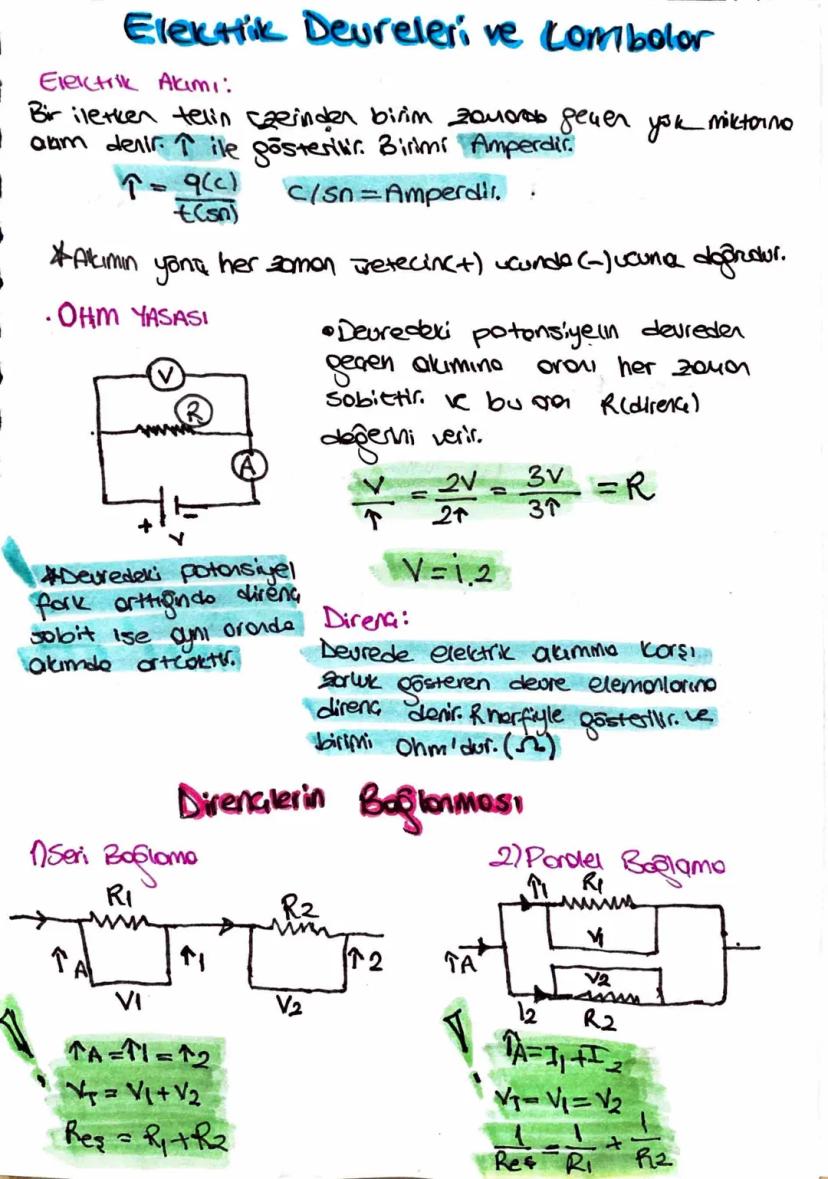 Elektrik Devreleri ve Lambalar
Elektrik Akımı:
Bir iletken telin üzerinden birim zamanda geçen yük miktarına
akım denir. ↑ ile gösterilir. Birimi Amperdir.
↑ = q(c) / t(sn) c/sn = Amperdir.
*Akımın yönü her zaman üretecin(+) ucunda (-) ucuna doğrudur.
• OHM YASASI
V
R
A
+ -
V
• Devredeki potansiyelin devreden
geçen akımına oranı her zaman
sabittir. ve bu oran R(direnç)
değerini verir.
V/↑ = 2V/2↑ = 3V/3↑ = R
V = i.2
*Devredeki potansiyel
fark arttığında direnç
sabit ise aynı oranda
akımda artcaktır.
Direnç:
Devrede elektrik akımına karşı
zorluk gösteren devre elemanlarına
direnç denir. R harfiyle gösterilir. ve
birimi Ohm'dur. (Ω)
Dirençlerin Bağlanması
1) Seri Bağlama
R1 R2
↑A ↑1 ↑2
V1 V2
↑A = ↑1 = ↑2
VT = V1 + V2
Reş = R1 + R2
2) Paralel Bağlama
↑1 R1
V1
↑A
V2
I2 R2
↑A = I1 + I2
VT = V1 = V2
1/Reş = 1/R1 + 1/R2